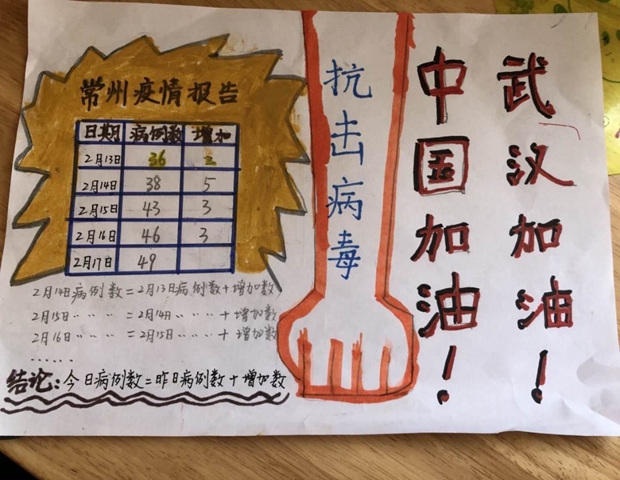 常州疫情报告
日期 病例数 增加
2月13日 36 2
2月14日 38 5
2月15日 43 3
2月16日 46 3
2月17日 49
2月14日病例数=2月13日病例数+增加数
2月15日‥‥=2月14日‥‥+增加数
2月16日‥‥=2月15日‥‥+增加数
……
结论:今日病例数=昨日病例数+增加数
抗击病毒
中国加油!
武汉加油!